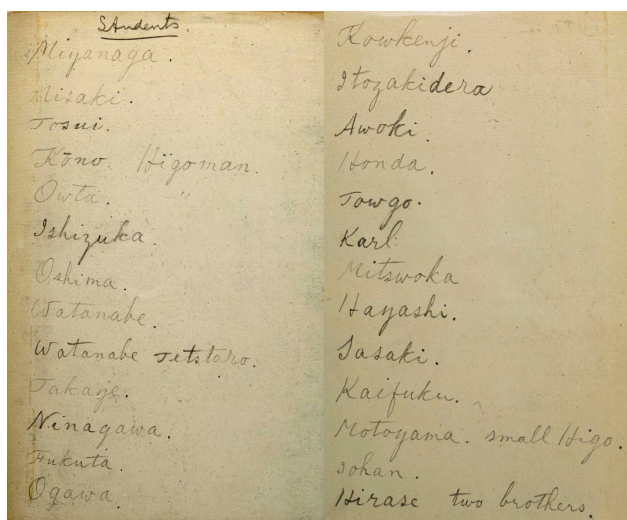 Students.
Miyanaga.
Misaki.
Tosui.
Kōno. Higoman.
Owta. "
Ishizuka.
Oshima.
Watanabe.
Watanabe Tetstaro.
Takaye.
Ninagawa.
Fukuta.
Ogawa.
Kowkenji.
Itozakidera
Awoki.
Honda.
Towgo.
Karl
Mitswoka
Hayashi.
Sasaki.
Kaifuku.
Motoyama. small Higo.
Johan.
Hirase two brothers.